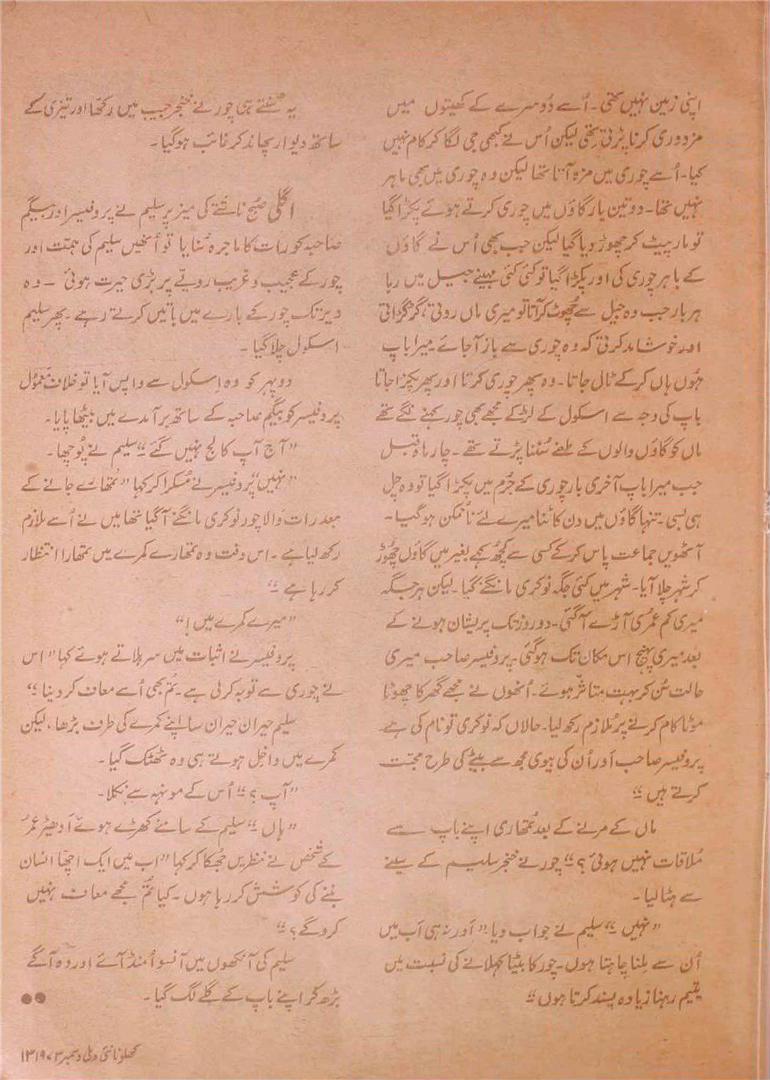 اپنی زمین نہیں تھی۔ اُسے دُوسرے کے کھیتوں میں
مزدوری کرنا پڑتی تھی لیکن اُس نے کبھی جی لگا کر کام نہیں
کیا۔ اُسے چوری میں مزہ آتا تھا لیکن وہ چوری میں بھی ماہر
نہیں تھا۔ دو تین بار گاؤں میں چوری کرتے ہوئے پکڑا گیا
تو مار پیٹ کر چھوڑ دیا گیا لیکن جب بھی اُس نے گاؤں
کے باہر چوری کی اور پکڑا گیا تو کئی کئی مہینے جیل میں رہا
ہر بار جب وہ جیل سے چھوٹ کر آتا تو میری ماں روتی، گڑگڑاتی
اور خوشامد کرتی کہ وہ چوری سے باز آجائے۔ میرا باپ
ہُوں ہاں کر کے ٹال جاتا۔ وہ پھر چوری کرتا اور پھر پکڑا جاتا
باپ کی وجہ سے اسکول کے لڑکے مجھے بھی چور کہنے لگے تھے
ماں کو گاؤں والوں کے طعنے سُننا پڑتے تھے۔ چار ماہ قبل
جب میرا باپ آخری بار چوری کے جُرم میں پکڑا گیا تو وہ چل
ہی بسی۔ تنہا گاؤں میں دن کاٹنا میرے لئے ناممکن ہو گیا۔
آٹھویں جماعت پاس کر کے کسی سے کچھ کہے بغیر میں گاؤں چھوڑ
کر شہر چلا آیا۔ شہر میں کئی جگہ نوکری مانگنے گیا۔ لیکن ہر جگہ
میری کم عُمری آڑے آ گئی۔ دو روز تک پریشان ہونے کے
بعد میری پہنچ اس مکان تک ہو گئی۔ پروفیسر صاحب میری
حالت سُن کر بہت متاثر ہوئے۔ اُنھوں نے مجھے گھر کا چھوٹا
موٹا کام کرنے پر مُلازم رکھ لیا۔ حالاں کہ نوکری تو نام کی ہے
پروفیسر صاحب اَور اُن کی بیوی مجھ سے بیٹے کی طرح محبّت
کرتے ہیں“
ماں کے مرنے کے بعد تمھاری اپنے باپ سے
مُلاقات نہیں ہوئی؟“ چور نے خنجر سلیم کے سینے
سے ہٹا لیا۔
”نہیں“ سلیم نے جواب دیا۔ ”اَور نہ ہی اَب میں
اُن سے ملنا چاہتا ہوں۔ چور کا بیٹا کہلانے کی نسبت میں
یتیم رہنا زیادہ پسند کرتا ہوں“
یہ سُنتے ہی چور نے خنجر جیب میں رکھا اور تیزی کے
ساتھ دیوار پھاند کر غائب ہو گیا۔
اگلی صبح ناشتے کی میز پر سلیم نے پروفیسر اور بیگم
صاحبہ کو رات کا ماجرہ سُنایا تو اُنھیں سلیم کی ہمّت اور
چور کے عجیب و غریب رویّے پر بڑی حیرت ہوئی۔ وہ
دیر تک چور کے بارے میں باتیں کرتے رہے۔ پھر سلیم
اسکول چلا گیا۔
دوپہر کو وہ اسکول سے واپس آیا تو خلافِ معمُول
پروفیسر کو بیگم صاحبہ کے ساتھ برآمدے میں بیٹھا پایا۔
”آج آپ کالج نہیں گئے“ سلیم نے پُوچھا۔
”نہیں“ پروفیسر نے مُسکرا کر کہا ”تمھارے جانے کے
بعد رات والا چور نوکری مانگنے آ گیا تھا میں نے اُسے ملازم
رکھ لیا ہے۔ اس وقت وہ تمھارے کمرے میں تمھارا انتظار
کر رہا ہے“
”میرے کمرے میں!“
پروفیسر نے اثبات میں سر ہلاتے ہوئے کہا ”اس
نے چوری سے توبہ کر لی ہے۔ تُم بھی اُسے معاف کر دینا“
سلیم حیران حیران سا اپنے کمرے کی طرف بڑھا، لیکن
کمرے میں داخل ہوتے ہی وہ ٹھٹک گیا۔
”آپ؟“ اُس کے مونہہ سے نکلا۔
”ہاں“ سلیم کے سامنے کھڑے ہوئے اَدھیڑ عمر
کے شخص نے نظریں جھکا کر کہا ”اب میں ایک اچھا انسان
بننے کی کوشش کر رہا ہوں۔ کیا تُم مجھے معاف نہیں
کرو گے؟“
سلیم کی آنکھوں میں آنسو اُمنڈ آئے اور وہ آگے
بڑھ کر اپنے باپ کے گلے لگ گیا۔ ●●
کھلونا نئی دہلی دسمبر ۱۹۷۳ ۱۳